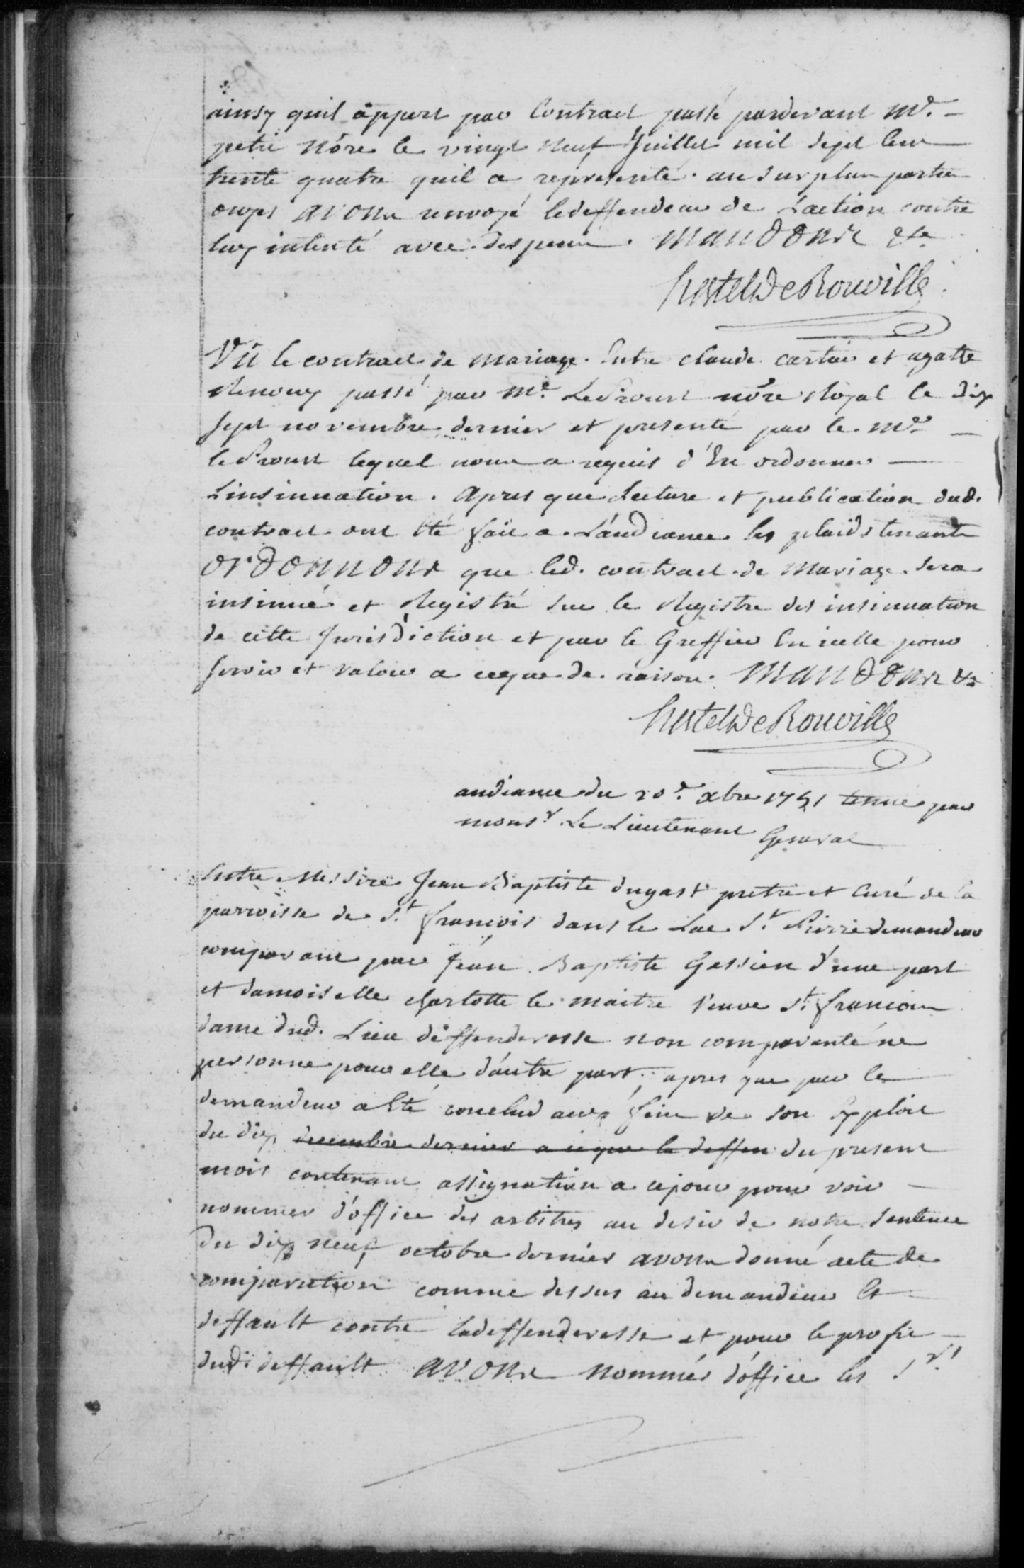 ainsy quil appert par Contract passé pardevant Me.
petit nôre le vingt neuf Juillet mil sept Cens
trente quatre quil a representé. au surplus parties
ouyes avons renvoyé le deffendeur de L'action contre
luy intenté avec despens. Mandons &a
hertel De Rouville
Vû le contract de mariage Entre claude cartier et agatte
Renouy passé par Me. LeProust nôre Royal le dix
sept novembre dernier et presenté par le. Me.
le Proust lequel nous a requis d'En ordonner
Linsinuation. apres que Lecture et publication dud.
contract ont êté fait a Laudiance les plaids tenants
Ordonnons que led. contract de mariage sera
insinué et Registré sur le Registre des insinuations
de cette Jurisdiction et par le Greffier En icelle pour
servir et valoir a ceque de raison. Mandons &a
hertel De Rouville
audiance du 20e. xbre 1751 tenue par
monsr. Le Lieutenant General
Entre Messire Jean Baptiste dugast pretre et Curé de la
parroisse de St. francois dans le Lac St. Pierre demandeur
comparant par Jean Baptiste Gassien d'une part
et damoiselle charlotte le maitre veuve St. francois
dame dud. Lieu deffenderesse non comparante ne
personne pour elle d'autre part, apres que par le
demandeur a Eté conclud aux fins de son Exploit
du dix decembre dernier a ce que le deffen du present
mois contenant assignation a cejour pour voir
nommer d'office des arbitres au desir de notre sentence
du dix neuf octobre dernier avons donné acte de
comparution comme dessus au demandeur Et
deffault contre ladeffenderesse et pour le profit
dudt. deffault avons nommés d'office les Srs